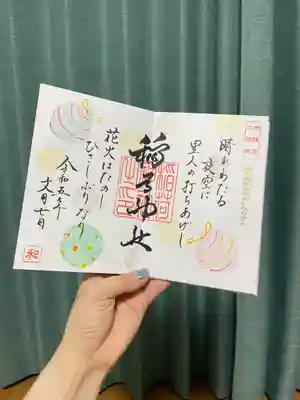 晴れわたる
夜空に
里人の打ちあげし
稲荷神社
花火はたのし
ひさしぶりなり
令和五年
文月七日
和